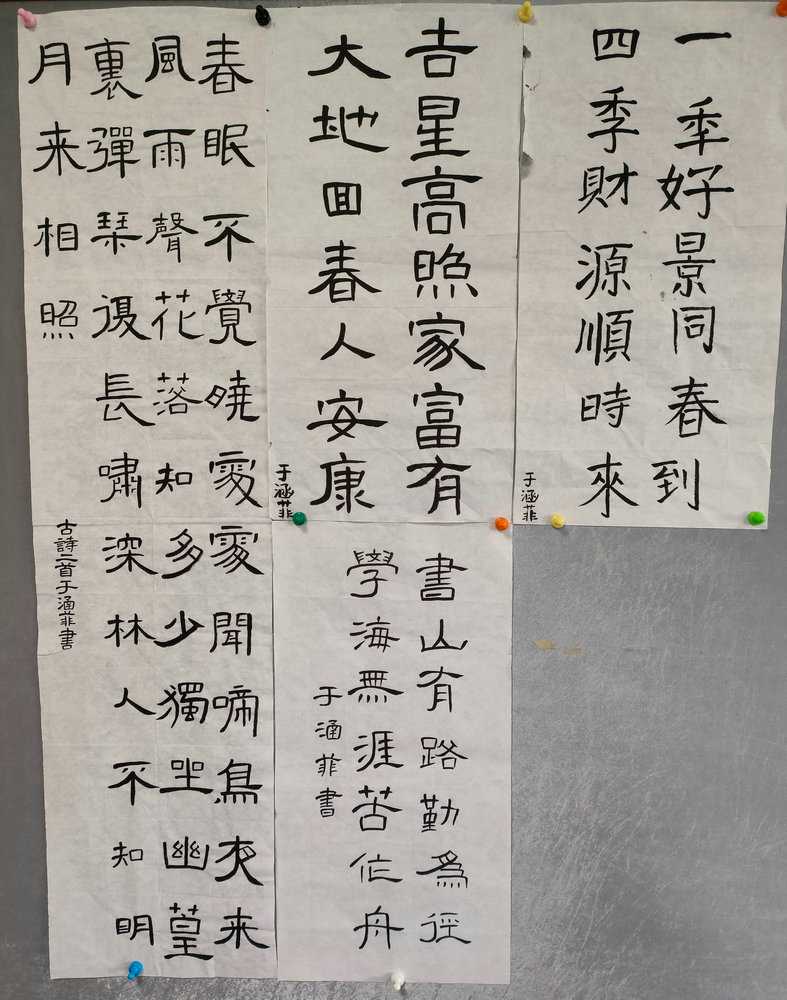 一季好景同春到
四季財源順時來
于涵菲
吉星高照家富有
大地回春人安康
于涵菲
春眠不覺曉處處聞啼鳥夜来
風雨聲花落知多少獨坐幽篁
裏彈琹復長嘯深林人不知明
月来相照
古詩二首于涵菲書
書山有路勤為徑
學海無涯苦作舟
于涵菲書